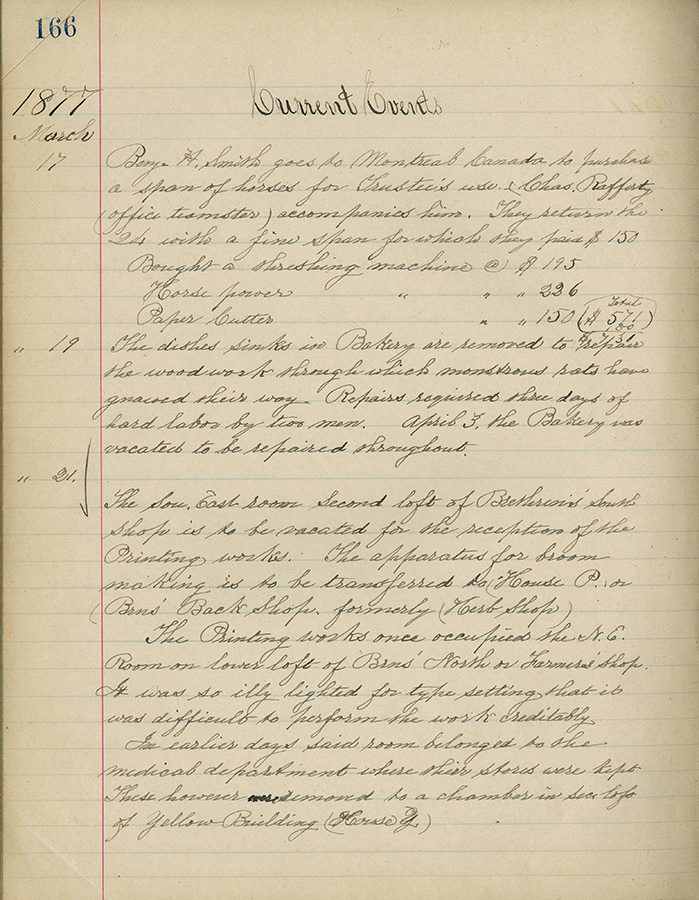 166
Current Events
1877
March
17 Benj. H. Smith goes to Montreal Canada to purchase
a span of horses for Trustee's use. & Chas. Rafferty
(office teamster) accompanies him. They return the
24 with a fine span for which they paid $ 150
Bought a threshing machine @ $ 195
Horse power " " " 226
Paper Cutter " " 150 (Total $ 571
" 19 The dishes sinks in Bakery are removed to repair
the wood work through which monstrous rats have
gnawed their way. Repairs required three days of
hard labor by two men. April 3, the Bakery was
vacated to be repaired throughout.
" 21.
The Sou. East room second loft of Brethren's South
Shop is to be vacated for the reception of the
Printing works. The apparatus for broom
making is to be transferred to (House P. or
(Brns' Back Shop. formerly (Herb Shop)
The Printing works once occupied the N. E.
Room on lower loft of Brns' North or Farmers' Shop.
It was so illy lighted for type setting that it
was difficult to perform the work creditably
In earlier days said room belonged to the
medical department where their stores were kept
These however removed to a chamber in sec. loft
of Yellow Building (House Y)